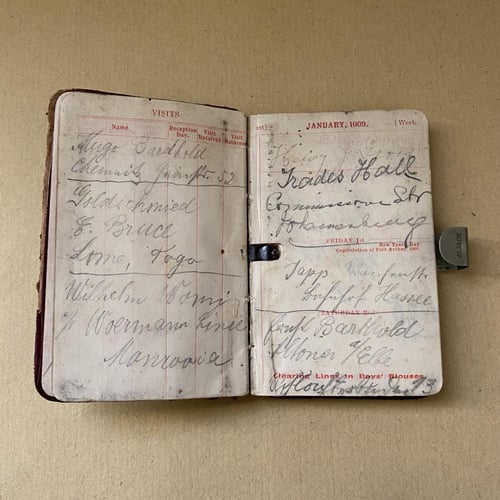 VISITS.
Name Reception Day. Visit Received Visit Returned
Hugo Barthold
Chemnitz 53
Goldschmied
E. Bruce
Lome, Togo
Wilhelm
p. Woermann Linie
Monrovia
JANUARY, 1909. [Week
Trades Hall
Commissioner Str
Johannesburg
FRIDAY 1st
New Year's Day
Capitulation of Port Arthur, 1905
Bahnhof Hassee
SATURDAY 2nd
Barthold
Altona a/Elbe
Clearing Lines in Boys' Blouses